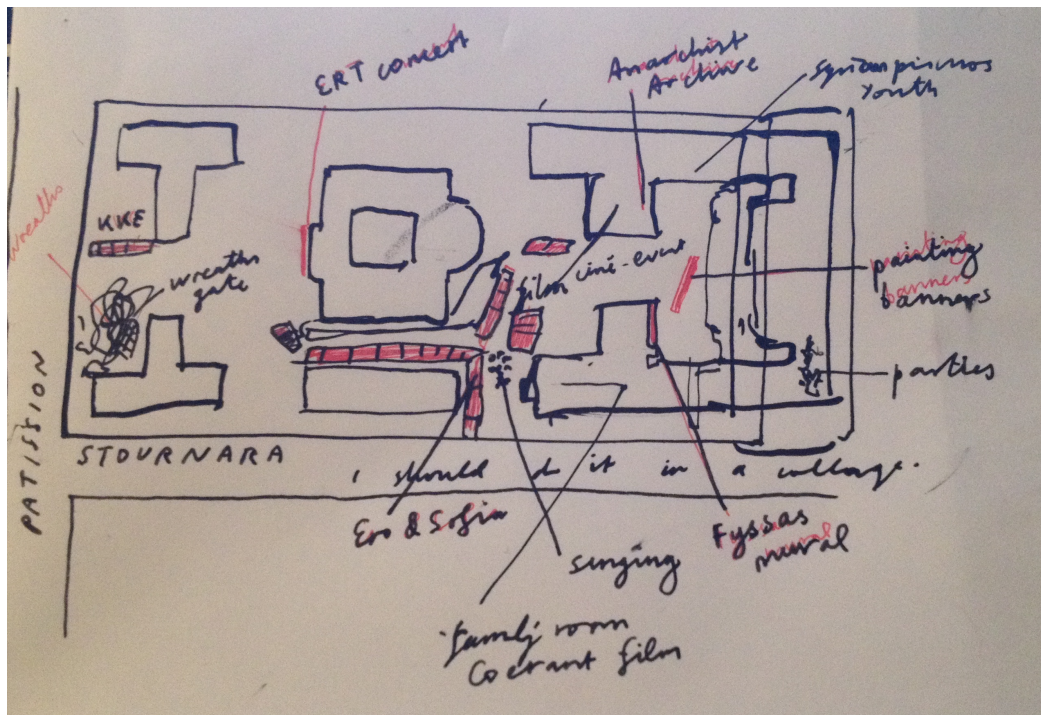 ERT concert
Anarchist
Archive
Youth
wreaths
KKE
wreaths
gate
film ciné-event
painting
banners
parties
PATISSION
STOURNARA
I should do it in a collage.
Ero & Sofia
singing
Fyssas
mural
family room
film